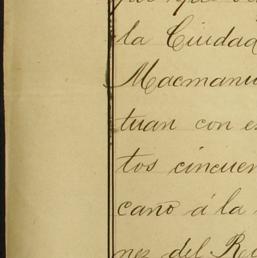 la Ciudad
Macmanu
tuan con es
tos cincuen
cano á la
nez del Re